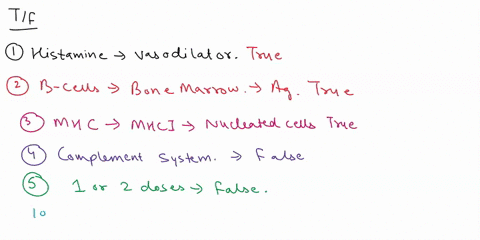 T/F
① Histamine → vasodilator. True
② B-cells → Bone Marrow. → Ag. True
③ MHC → MHCI → Nucleated cells True
④ Complement System. → False
⑤ 1 or 2 doses → False.
10